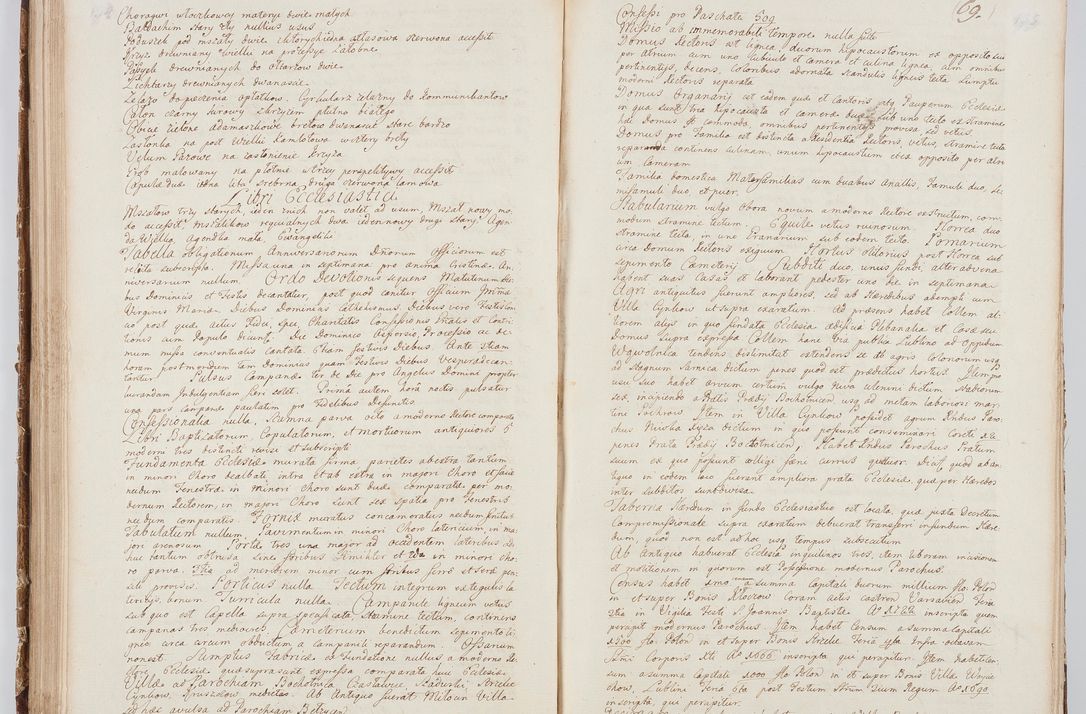 Chorągwi włoczkowey materye dwie małych
Baldachim stary zły nullius usus
Poduszek pod mszały dwie atłasowa czerwona accessit
Krzyz drewniany wielki na processye żałobne
Pasyek drewnianych do ołtarzow dwie
Lichtarzy drewnianych dwanascie
Zelazo do pieczenia opłatkow. Cyrkularz żelazny do kommunikantow
Całun czarny surowy z krzyzem płotna białego
Obicie zielone adamaszkowe bretow dwanascie stare bardzo
Zasłonka na post wielki kamlotowa w cztery brety
Velum Parowe na zasłonienie krzyza
Grob malowany na płotnie w trzey perspektywy accessit
Capulae duae iedna lita srebrna, druga czerwona lamowa
Libri Ecclesiastici
Mszałow trzy starych, ieden z nich non valet ad usum, Mszał nowy mo-
do accessit, mszalikow requialnych dwa ieden nowy drugi stary, Agen-
da Wielka, Agendka mała, Ewangeliki
Tabella obligationum Anniversariorum Dnorum Officiorum est
relicta subscripta. Missa una in septimana pro anima Crestinae. An-
niversarium nullum. Ordo Devotionis sequens Matutinum die-
bus Dominicis et Festis decantatur, post quod canitur Officium Imma
Virginis Mariae. Diebus Dominicis Cathechismus. Diebus vero Festis
post quae Actus Fidei, Spei, Charitatis Confessionis Contri-
tionis cum Populo dicunt. Die Dominico Aspersio, Processio ac de-
mum missa conventualis cantata. Etiam festivis Diebus. Ante
horam postmeridiem tam Dominicis quam Festivis Diebus Vesperae decan-
tantur. Pulsus Campanae ter de die pro Angelus Domini propter
lucrandam Indulgentiam fieri solet. Prima autem hora noctis pulsatur
una pars campanae paulatim pro Fidelibus Defunctis
Confessionalia nulla, Scamna parva octo a moderno Rectore comparata
Libri Baptizatorum, Copulatorum, et Mortuorum antiquiores 5
moderni tres distincti revisi et subscripti
Fundamenta Ecclesiae murata firma parietes ab extra tantum
in minori choro dealbati intra et ab extra in majori Choro et facie
nudum Fenestrae in Minori Choro sunt duae comparatae per mo-
dernum Rectorem, in majori Choro sunt sex spatia pro Fenestris
nec dum comparatis. Fornix muratus concameratus
Tabulatum nullum. Pavimentum in minori Choro latericium, in ma-
jori arenosum Portae tres una major ad occidentem lateribus ad-
huc tantum obtrusa sine foribus similiter et 2da in minori cho-
ro parva. 3tia ad meridiem minor cum foribus ferro et sera pen-
sili provisis. Porticus nulla Tectum integrum ex tegulis la-
teritijs, bonum Turricula nulla. Campanile ligneum vetus
sub quo est capella supra specificata, stramine tectum, continens
campanas tres mediocres. Cmeterium benedictum sepimento li-
gneo circa circum obductum a campanili reparandum. Ossarium
non est. Sumptus Fabricae et Fundatione nullus a moderno Re-
ctore Ecclesiae quae supra sunt expressa comparata huic Ecclesiae
Villae ad Parochiam Bochotnica Czasławice, Zaduski, Strzelce
Cynkow, Drzewce medietas. Ab Antiquo fuerat Miłocin Villa
est haec avulsa ad Parochiam Bełzycen
69.
Confessi pro Paschate 509
Missio ab immemorabili tempore nulla fuit
Domus Rectoris est lignea, duorum hypocaustorum ex opposito sui
per atrium cum uno cubiculo et camera et culina lignea, cum omnibus
pertinentijs, decens, coloribus adornata scandulis ligneis tecta sumptu
moderni Rectoris reparata
Domus Organarij est eadem quae et Cantoris atq Pauperum Ecclesiae
in qua sunt tria hypocausta et camerae duae sub uno tecto ex stramine
haec Domus est commoda, omnibus pertinentijs provisa sed vetus.
Domus pro Familia est distincta a Residentia Rectoris, vetus, stramine tecta
reparanda continens culinam, unum hypocaustum et ex opposito per atri-
um Cameram
Familia domestica Mater Familias cum duabus Ancillis, Famuli duo, Se-
mifamuli duo, et puer.
Stabularium vulgo Obora novum a moderno Rectore exstructum, com-
modum stramine tectum. Equile vetus ruinosum. Horrea duo
stramine tecta, in uno Granarium sub eodem tecto. Pomarium
circa domum Rectoris exiguum. Hortus olitorius post Horrea sub
sepimento Cmeterij. Subditi duo, unus fundi, alter ab una
habent suas Casas et laborant pedester uno die in septimana
Agri antiquitus fuerunt ampliores, sed ab Haeredibus adempti cum
Villa Cynkow ut supra exaratum. Ad praesens habet Collem al-
tiorem alijs in quo fundata Ecclesia aedificia Plebanalia et Casae seu
Domus supra expressae Collem hanc via publica Lublino ad Oppidum
Wąwolnica tendens distimitat extendens se ab agris Colonorum usq
ad stagnum Sarnica dictum penes quod est praedictus hortus. Item pro
usu suo habet arvum certum vulgo Niva dictum Stadiorum
sex, incipiendo a Pratis Praedij Bochotnicen, usq ad metam laboriosi mar-
tini Pichroris Item in Villa Cynkow possidet agrum Rndus Paro-
chus Niwka Ryża dictum in quo possunt conseminari coreti xii
penes Prata Praedij Bochotnicen, Habet Rndus Parochus Pratum
suum ex quo possunt colligi foeni currus quatuor. Diaf. quod aban-
tiquo in eodem loco fuerant ampliora prata Ecclesiae, quae per Haeredes
inter subditos sunt divisa.
Taberna Haeredum in fundo Ecclesiastico est locata, quae juxta Decretum
Compromissionale supra exaratum debuerat transferri in fundum Haere-
dum, quod non est ad hoc usq tempus subsecutum
Ab antiquo habuerat Ecclesia inquilinos tres, item laborem incisionem
et molitionem in quorum est Possessione modernus Parochus.
Census habet 1mo a summa capitali duorum millium flo. Polon
in et super Bonis Kłoczow coram actis castren Varsavien Feria
2tia in Vigilia Festi S. Joannis Baptistae Ao 1722 inscripta quem
percipit modernus Parochus. Item habet Censum a summa capitali
1200 flo. Polon in et super Bonis Strzelce Feria 4ta Infra octavam
SSmi Corporis Xti Ao 1666 inscripta qui percipitur. Item habet cen-
sum a summa capitali 1000 flo Polon in et super Bonis Villae Woycie-
chow, Lublini Feria 6ta post Festum Strum Trium Regum Ao 1690
inscripta, qui percipitur.